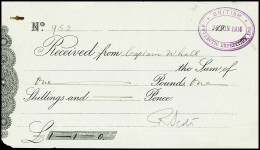 No. 953
BRITISH
JAN 1916
Received from Captain Whall
the Sum of
One Pounds One
Shillings and Pence
£ 1 - 1 - 0
R. Scott